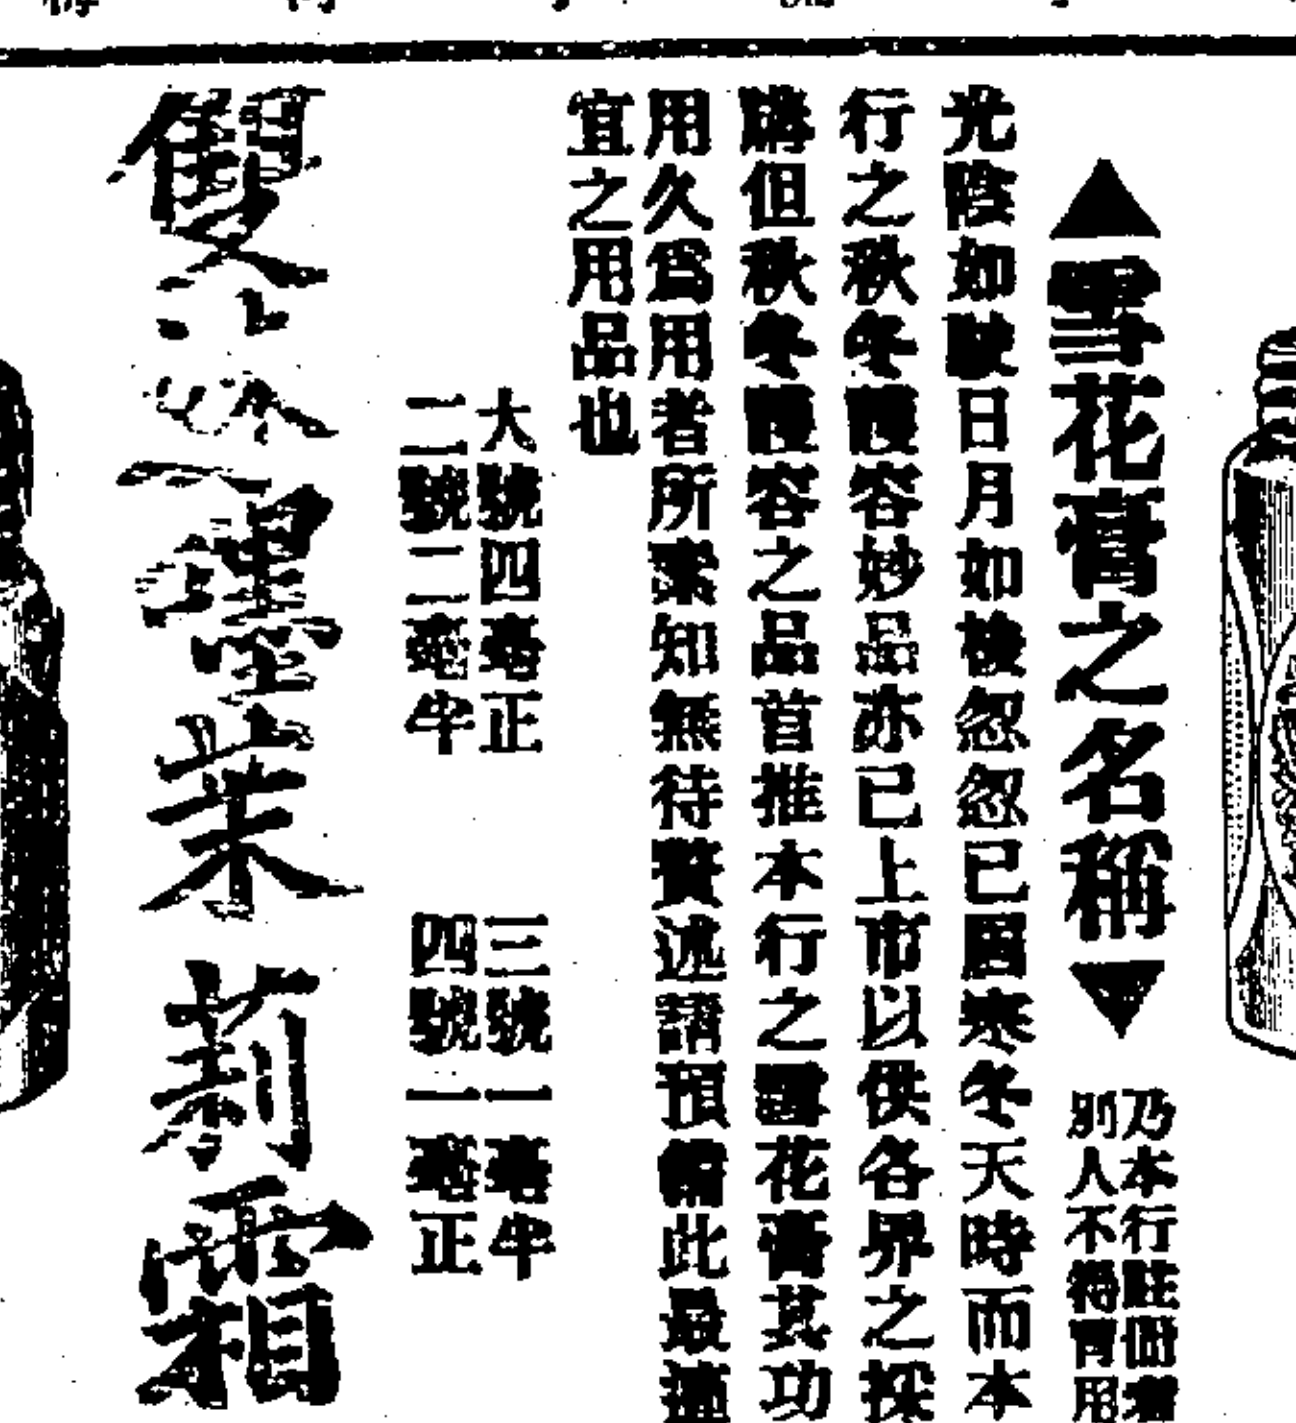 ▲雪花膏之名稱▼
乃本行註冊者
別人不得冒用
光陰如駛日月如梭忽忽已屆寒冬天時而本
行之秋冬護容妙品亦已上市以供各界之採
購但秋冬護容之品首推本行之雪花膏其功
用久為用者所素知無待贅述請預備此最適
宜之用品也
大號四毫正
二號二毫半
三號一毫半
四號一毫正
雙妹嚜茉莉霜